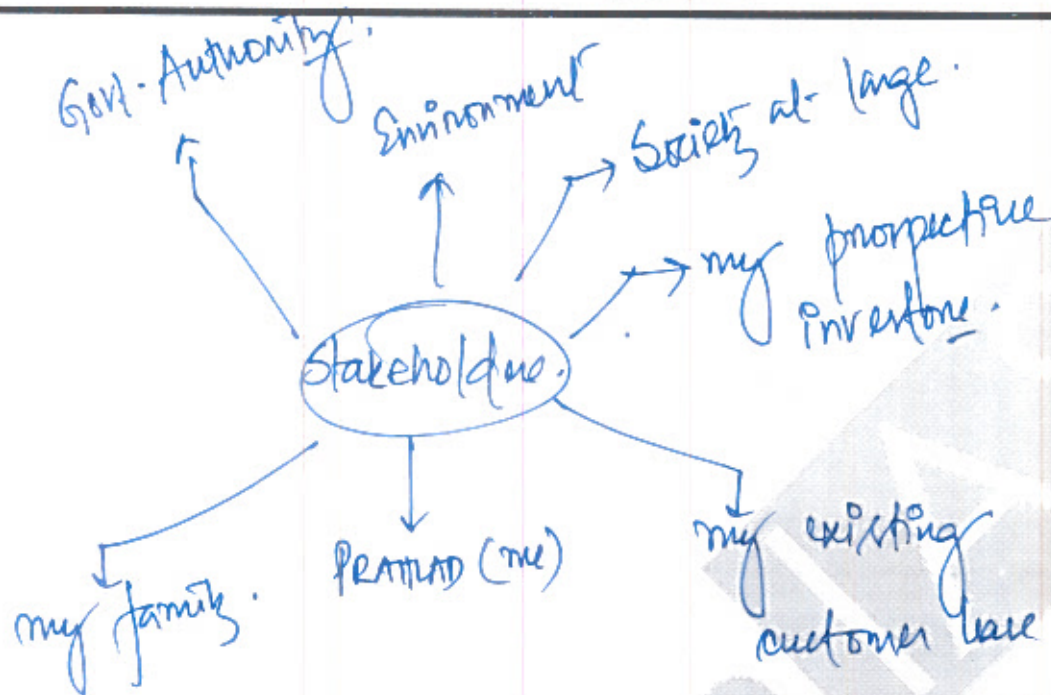 Govt. Authority.
Environment
Society at large.
my prospective
investors.
Stakeholders.
my family.
PRAHLAD (me)
my existing
customer base